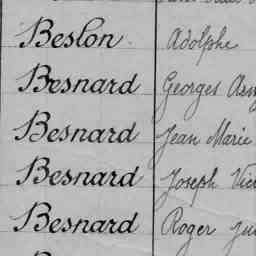 Beslon Adolphe
Besnard Georges
Besnard Jean Marie
Besnard Joseph
Besnard Roger